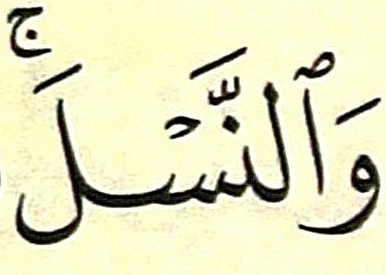 وَٱلنَّسْلَ ۚ